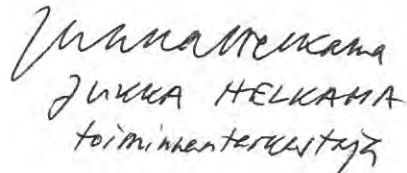 Jukka Helkama
JUKKA HELKAMA
toiminnantarkastaja